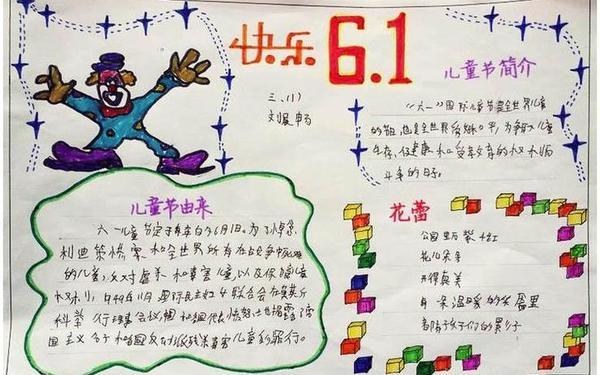 快乐 6.1
三.(1)
儿童节简介
"六一"国际儿童节是全世界儿童
的节日,也是全世界爱好和平,为争取儿童
生存,保健和受教育的权利而
斗争的日子。
儿童节由来
六一儿童节定于每年的6月1日。为了悼念
利迪策惨案和全世界所有在战争中死难
的儿童,反对虐杀和毒害儿童以及保障儿童
权利,1949年11月国际民主妇女联合会在莫斯
科举行理事会议,
国主义分子和各国反动派残杀毒害儿童的罪行。
花蕾
公园里
花儿朵朵
开得真美